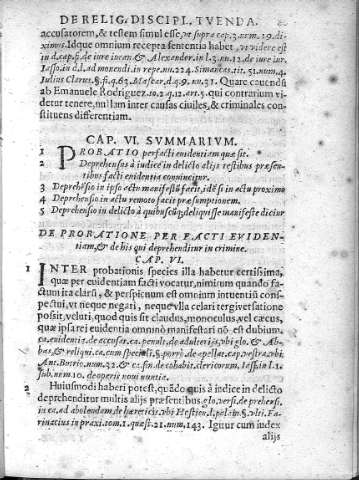 DE RELIG. DISCIPL. TVENDA.
accusatorem, & testem simul esse, vt supra cap. 3. nrm. 19. di-
ximus. Idque omnium recepta sententia habet, vt videre est
in d. cap. si de iure incom & Alexander. in l. 3. nu. 12. de iure iur.
Iasso. in d. l. admonendi. in repe. nu. 224. Simancas. tit. 51. num. 4.
Iulius Clarus. §. fi. q. 63. Mascar. d. q. 9. nu. 31. Quare cauendũ
ab Emanuele Rodriguez. 10. 2. q. 12. art. 5. qui contrarium vi-
detur tenere, nullam inter causas ciuiles, & criminales con-
stituens differentiam.
CAP. VI. SVMMARIVM.
1 PROBATIO per facti euidentiam quæ sit.
2 Deprehensus à iudice in delicto alijs testibus præsen-
tibus facti euidentia conuincitur.
3 Deprehẽsio in ipso actu manifestũ facit, idẽ si in actu proximo
4 Deprehensio in actu remoto facit præsumptionem.
5 Deprehensio in delicto à quibuscũq; deliquisse manifeste dicitur
DE PROBATIONE PER FACTI EVIDEN-
tiam, & de his qui deprehenditur in crimine.
CAP. VI.
1 INTER probationis species illa habetur certissima,
quæ per euidentiam facti vocatur, nimirum quando fa-
ctum ita clarũ, & perspicuum est omnium intuentiũ conspe-
ctui, vt neque negari, neque vlla celari tergiuersatione
possit, veluti, quod quis sit claudus, monoculus, vel cæcus,
quæ ipsa rei euidentia omninò manifestari nõ est dubium,
ca. euidentia. de accusa. ca. penult. de adulterijs, vbi glo. & Ab-
bas, & reliqui. ca. cum speciali. §. porrò. de apellat. cap. vestra. vbi
Ant. Borrio. num. 32. & cc. fin. de cohabit. clericorum. Iass. in l. 1.
sub. nrm. 10. de operis noui nuntia.
2 Huiusmodi haberi potest, quãdo quis à iudice in delicto
deprehenditur multis alijs præsentibus. glo. versi. deprehensi.
in ca. ad abolendam. de hæreticis. vbi Hostien. l. palàm §. vlti. Fa-
rinatius in praxi. tom. 1. quæst. 21. num. 143. Igitur cum iudex
alijs